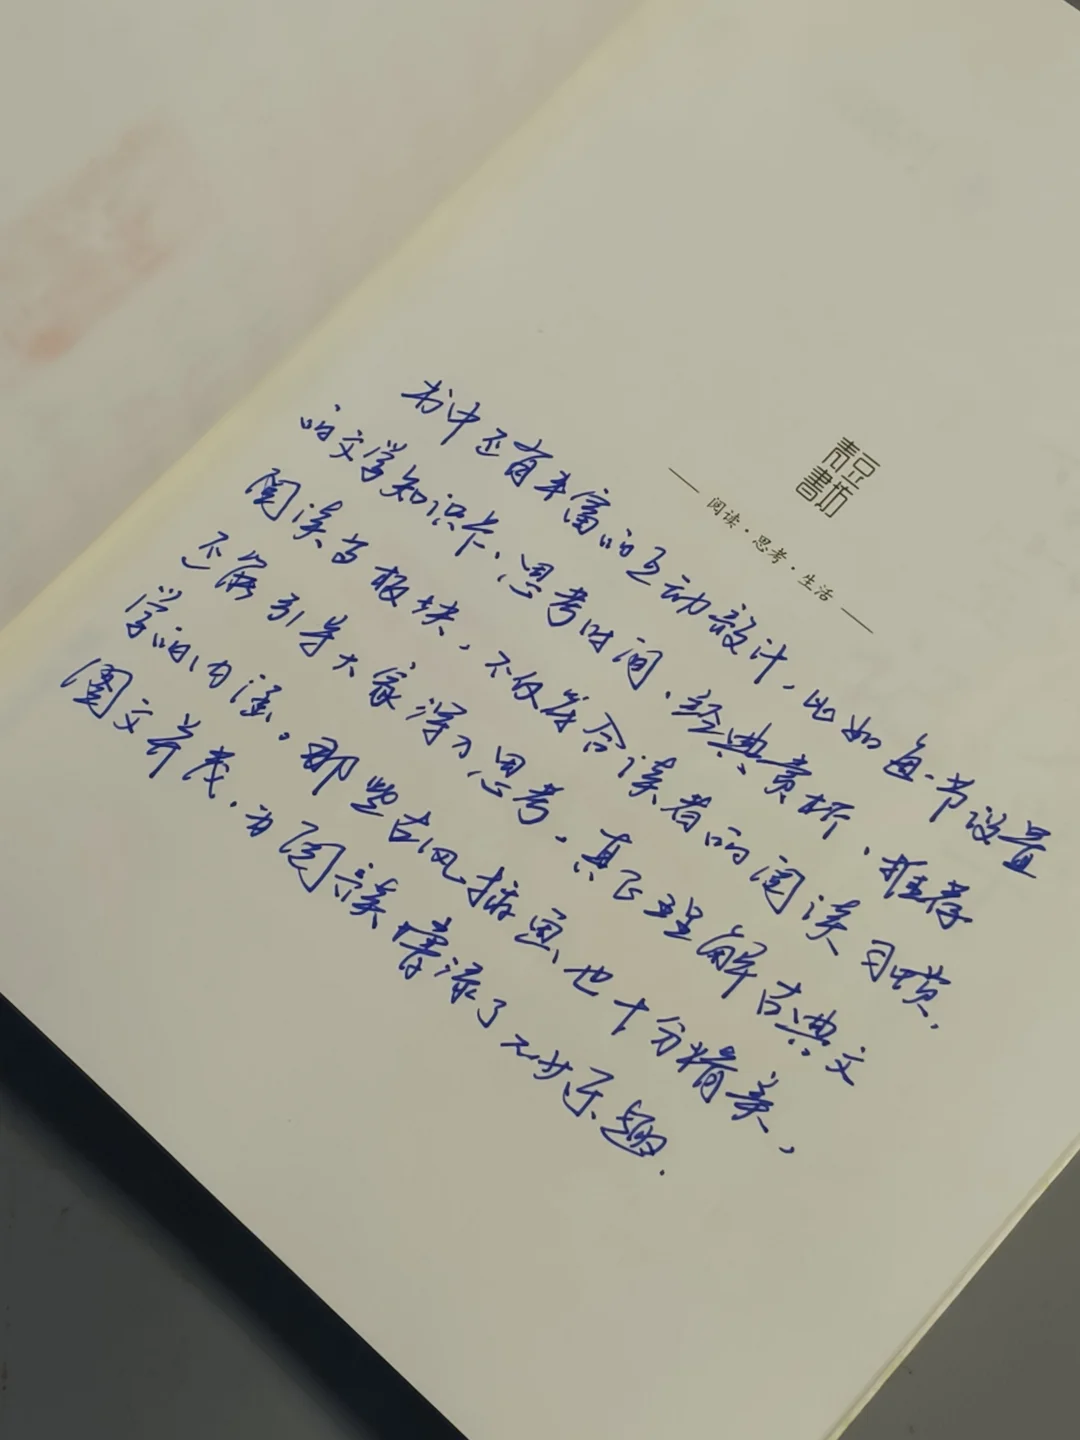 青豆
書坊
阅读·思考·生活
书中还有丰富的互动设计，比如每一节设置
的文学知识卡、思考时间、经典赏析、推荐
阅读等板块，不仅符合读者的阅读习惯，
还能引导大家深入思考，真正理解古典文
学的内涵。那些古风插画也十分精美，
图文并茂，为阅读增添了不少乐趣.